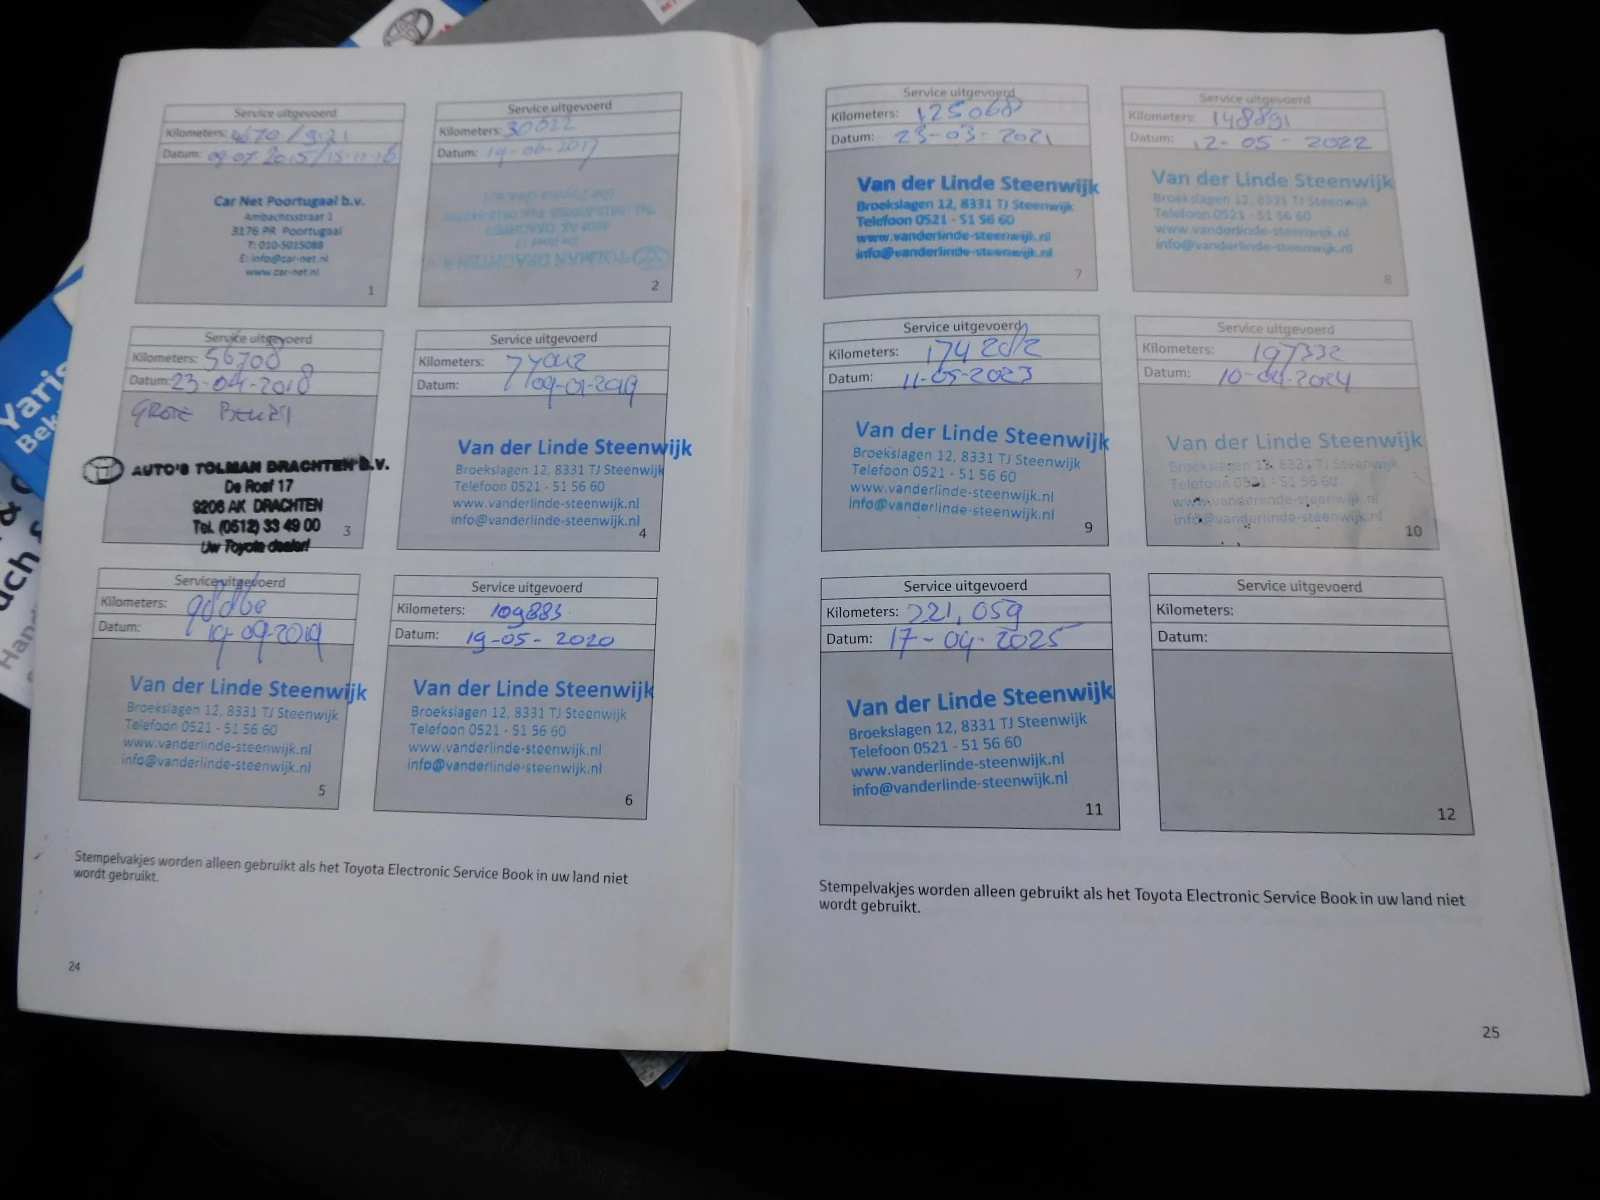 Service uitgevoerd
Kilometers: 4670 /
Datum: 09-07 2015/15-11-16
Car Net Poortugaal b.v.
Ambachtsstraat 1
3176 PR Poortugaal
T: 010-5015088
E: info@car-net.nl
www.car-net.nl
1
Service uitgevoerd
Kilometers: 30622
Datum: 19-06-2017
TOLMAN DRACHTEN B.V.
De Roef 17
9206 AK DRACHTEN
Uw Toyota dealer!
2
Service uitgevoerd
Kilometers: 56708
Datum: 23-04-2018
GROTE BEURT
AUTO'S TOLMAN DRACHTEN B.V.
De Roef 17
9206 AK DRACHTEN
Tel. (0512) 33 49 00
Uw Toyota dealer!
3
Service uitgevoerd
Kilometers:
Datum: 09-01-2019
Van der Linde Steenwijk
Broekslagen 12, 8331 TJ Steenwijk
Telefoon 0521 - 51 56 60
www.vanderlinde-steenwijk.nl
info@vanderlinde-steenwijk.nl
4
Service uitgevoerd
Kilometers:
Datum: 19-09-2019
Van der Linde Steenwijk
Broekslagen 12, 8331 TJ Steenwijk
Telefoon 0521 - 51 56 60
www.vanderlinde-steenwijk.nl
info@vanderlinde-steenwijk.nl
5
Service uitgevoerd
Kilometers: 109883
Datum: 19-05-2020
Van der Linde Steenwijk
Broekslagen 12, 8331 TJ Steenwijk
Telefoon 0521 - 51 56 60
www.vanderlinde-steenwijk.nl
info@vanderlinde-steenwijk.nl
6
Stempelvakjes worden alleen gebruikt als het Toyota Electronic Service Book in uw land niet
wordt gebruikt.
24
Service uitgevoerd
Kilometers: 125068
Datum: 23-03-2021
Van der Linde Steenwijk
Broekslagen 12, 8331 TJ Steenwijk
Telefoon 0521 - 51 56 60
www.vanderlinde-steenwijk.nl
info@vanderlinde-steenwijk.nl
7
Service uitgevoerd
Kilometers: 148891
Datum: 12-05-2022
Van der Linde Steenwijk
Broekslagen 12, 8331 TJ Steenwijk
Telefoon 0521 - 51 56 60
www.vanderlinde-steenwijk.nl
info@vanderlinde-steenwijk.nl
8
Service uitgevoerd
Kilometers: 174202
Datum: 11-05-2023
Van der Linde Steenwijk
Broekslagen 12, 8331 TJ Steenwijk
Telefoon 0521 - 51 56 60
www.vanderlinde-steenwijk.nl
info@vanderlinde-steenwijk.nl
9
Service uitgevoerd
Kilometers: 197332
Datum: 10-04-2024
Van der Linde Steenwijk
Broekslagen 12, 8331 TJ Steenwijk
Telefoon 0521 - 51 56 60
www.vanderlinde-steenwijk.nl
info@vanderlinde-steenwijk.nl
10
Service uitgevoerd
Kilometers: 221,059
Datum: 17-04-2025
Van der Linde Steenwijk
Broekslagen 12, 8331 TJ Steenwijk
Telefoon 0521 - 51 56 60
www.vanderlinde-steenwijk.nl
info@vanderlinde-steenwijk.nl
11
Service uitgevoerd
Kilometers:
Datum:
12
Stempelvakjes worden alleen gebruikt als het Toyota Electronic Service Book in uw land niet
wordt gebruikt.
25
Yaris